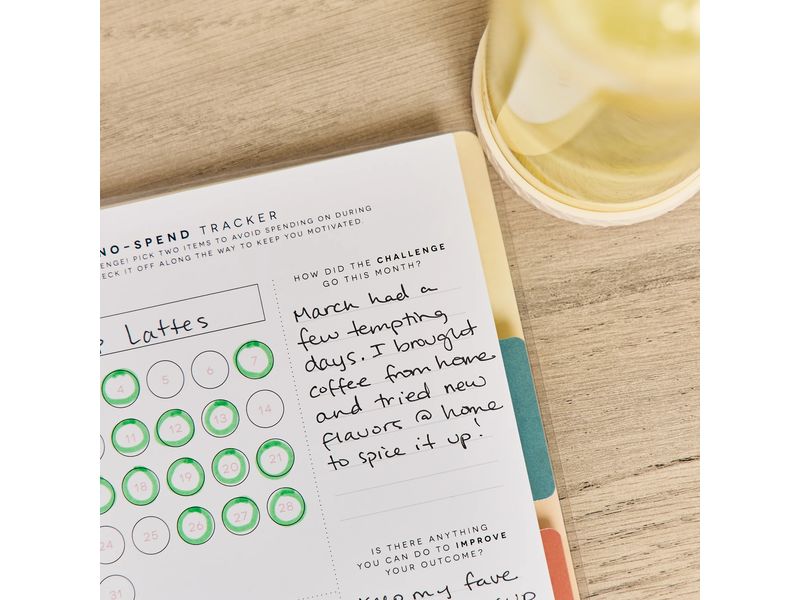 NO-SPEND TRACKER
ENGE! PICK TWO ITEMS TO AVOID SPENDING ON DURING
ECK IT OFF ALONG THE WAY TO KEEP YOU MOTIVATED
Lattes
4 5 6 7
11 12 13 14
18 19 20 21
24 25 26 27 28
31
HOW DID THE CHALLENGE
GO THIS MONTH?
March had a
few tempting
days. I brought
coffee from home
and tried new
flavors @ home
to spice it up!
IS THERE ANYTHING
YOU CAN DO TO IMPROVE
YOUR OUTCOME?
my fave